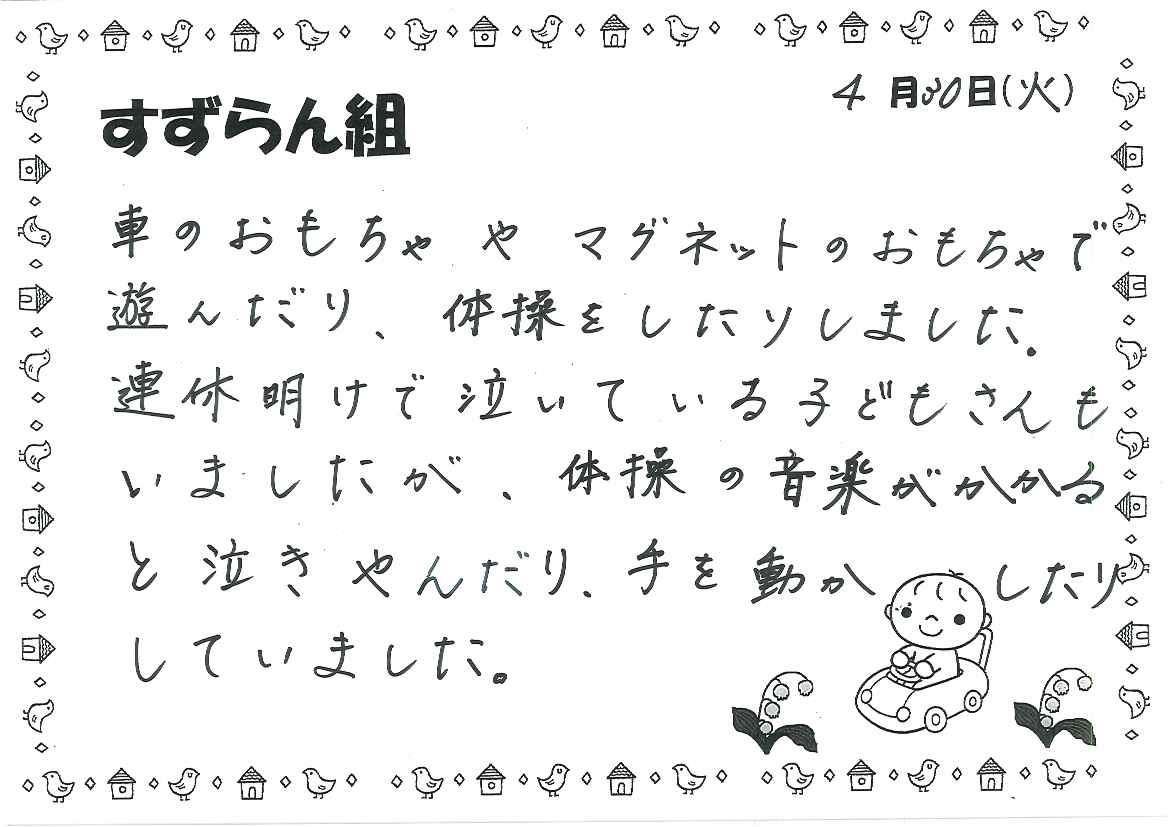 4月30日(火)
すずらん組
車のおもちゃやマグネットのおもちゃで
遊んだり、体操をしたりしました。
連休明けで泣いている子どもさんも
いましたが、体操の音楽がかかる
と泣きやんだり、手を動かしたり
していました。